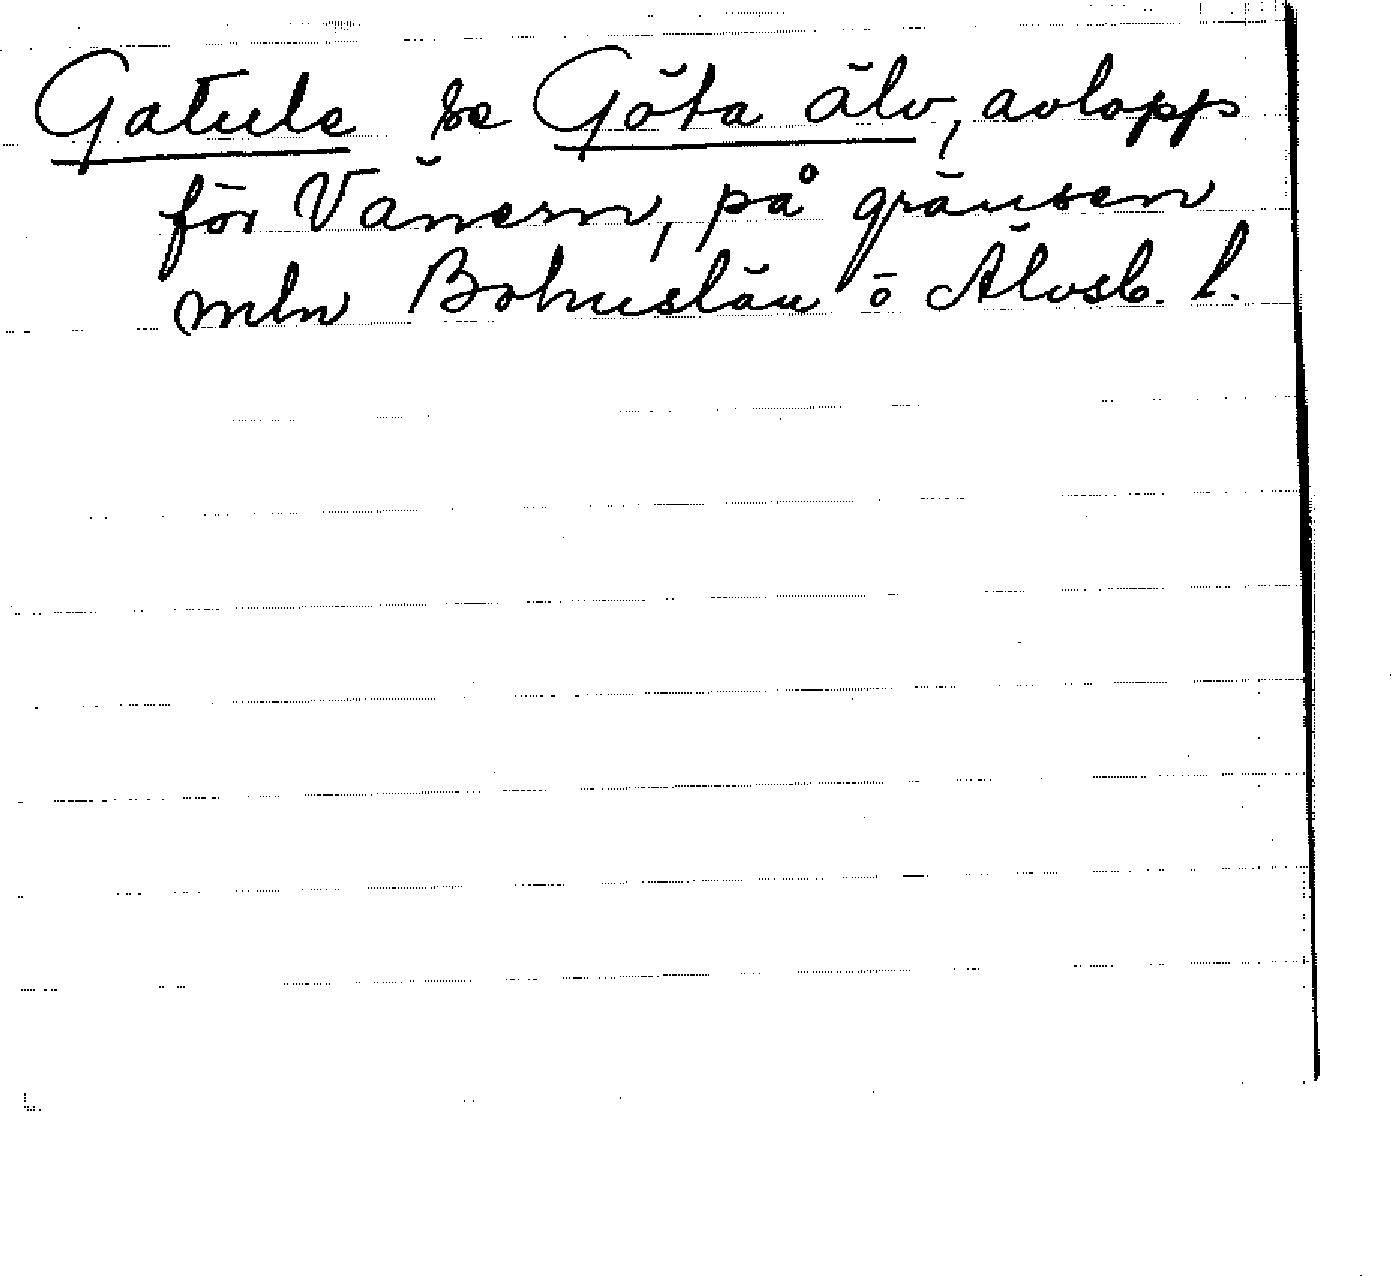 Gatule se Göta älv, avlopp
för Vänern, på gränsen
mln Bohuslän ö Älvsb. l.